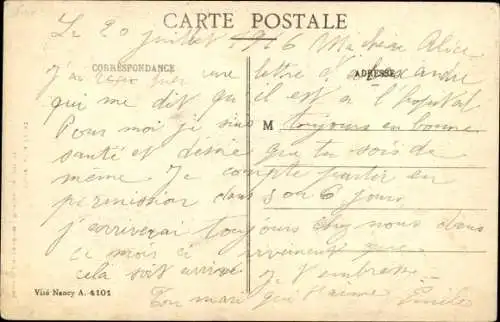 CARTE POSTALE
Le 20 juillet 1916 Ma chère Alice
CORRESPONDANCE
ADRESSE
J'ai reçu hier une lettre d'Alexandre
qui me dit qu'il est à l'hopital
M
Pour moi je suis toujours en bonne
santé et désire que tu sois de
même. Je compte partir en
permission dans 5 ou 6 jours
j'arriverai toujours chez nous dans
ce mois ci
cela soit arrivé Je t'embrasse
Ton mari qui t'aime Emile
Visé Nancy A. 4101